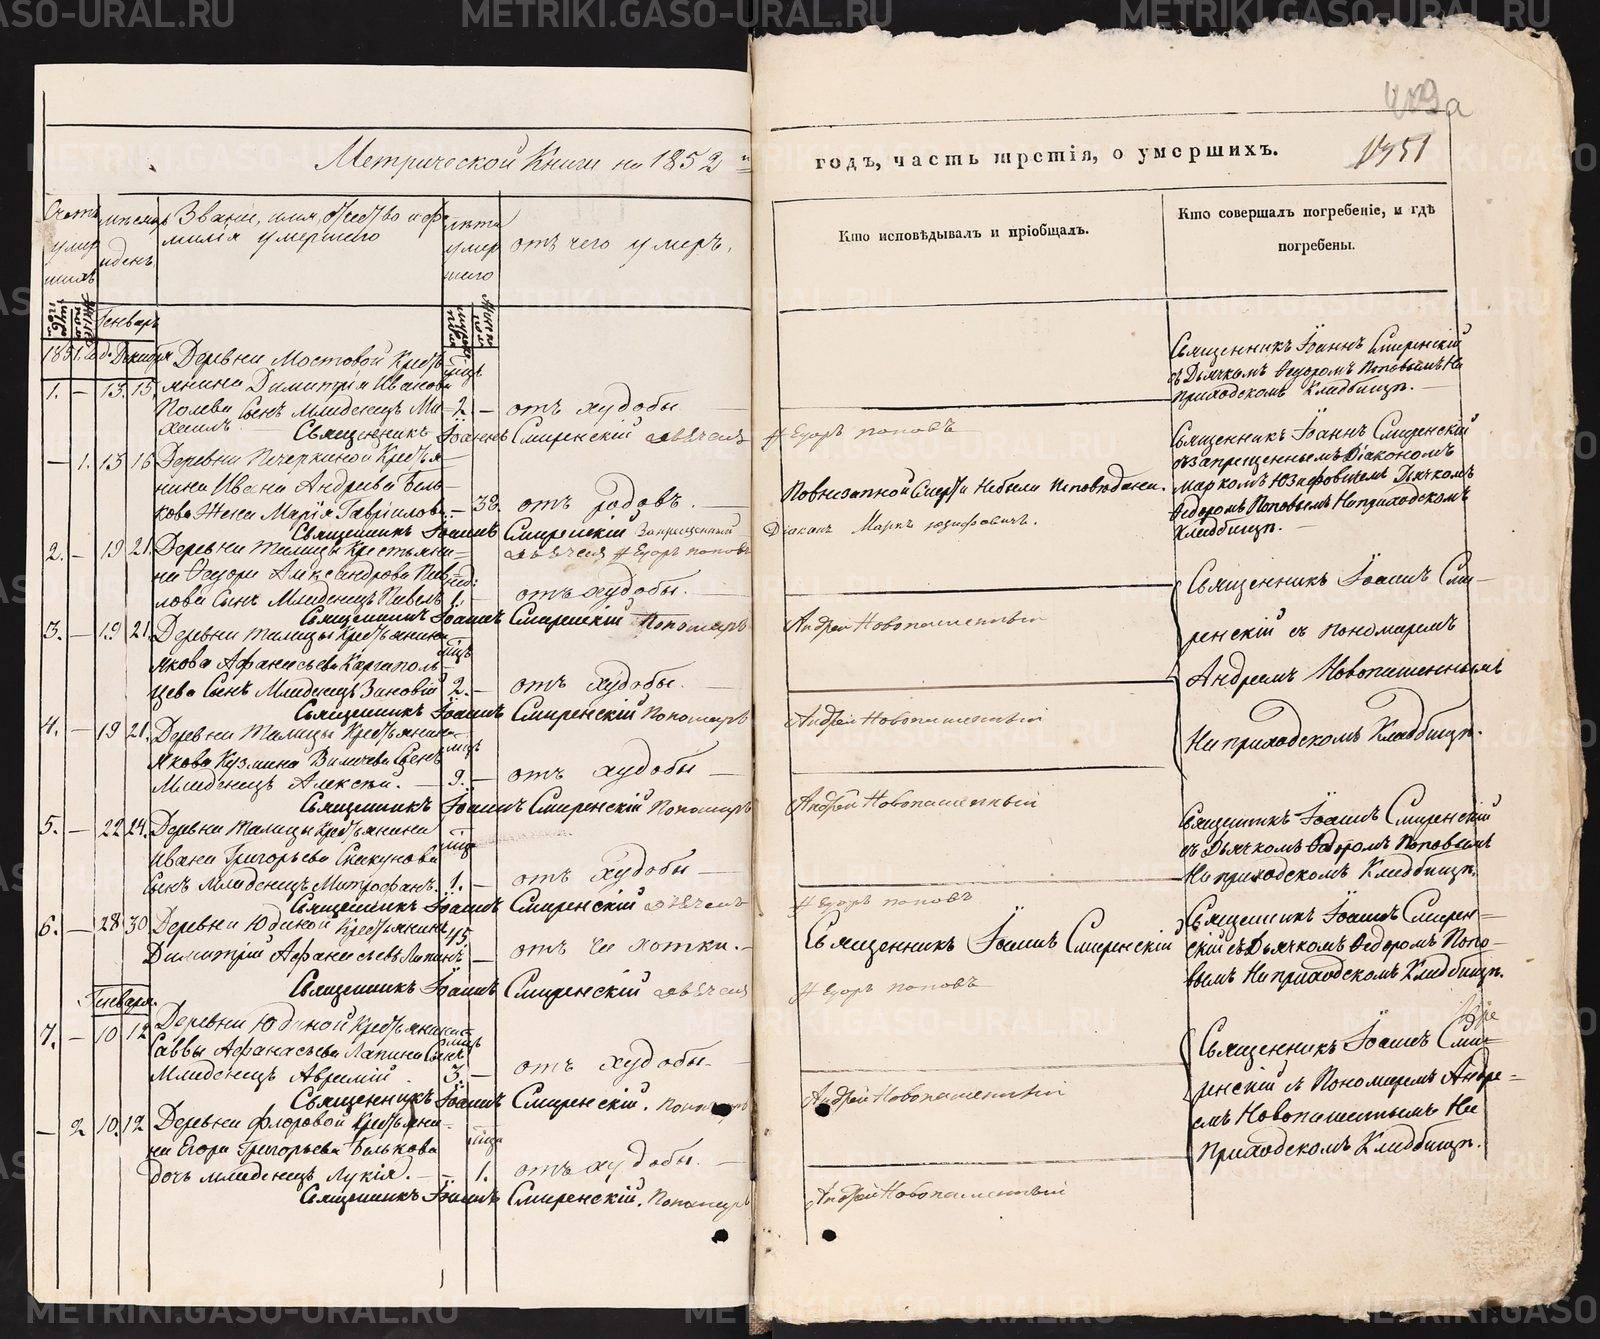 Метрической Книги на 1852 й
годъ, часть третія, о умершихъ.
Званіе, имя, отчество и фа-
милія умершаго
лѣта
умер
шаго
отъ чего умеръ,
Кто исповѣдывалъ и пріобщалъ.
Кто совершалъ погребеніе, и гдѣ
погребены.
Генварь
1851. год. Декабря
1. — 13. 15.
Деревни Мостовой Кресть-
янина Димитрія Иванова
Полева Сынъ Младенецъ Ми-
хаилъ
2. — отъ худобы
Священникъ Іоаннъ Смиренскій
Егоръ Поповъ
Священникъ Іоаннъ Смиренскій
съ Дьячкомъ Ѳедоромъ Поповымъ На
приходскомъ Кладбищѣ.
— 1. 13 16
Деревни Печеркиной Крестья-
нина Ивана Андреева Бель-
кова Жена Марія Гаврілова
— 32. отъ родовъ.
Священникъ Іоаннъ Смиренскій Запрещенный
Діаконъ Маркъ
По внезапной Смерти Небыла Исповѣдана.
Священникъ Іоаннъ Смиренскій
съ запрещеннымъ Діакономъ
Дьячкомъ
Ѳедоромъ Поповымъ На приходскомъ
Кладбищѣ.
2. — 19 21.
Деревни Талицы Крестьяни-
на Ѳедора Александрова Пав-
лова Сынъ Младенецъ Павелъ
1. — отъ худобы.
Егоръ Поповъ
Священникъ Іоаннъ Смиренскій Пономарь
Андрей Новопашенный
3. — 19 21.
Деревни Талицы Крестьянина
Якова Афанасьева Каргаполь-
цева Сынъ Младенецъ Зиновій
2. — отъ худобы.
Священникъ Іоаннъ Смиренскій Пономарь
Андрей Новопашенный
Священникъ Іоаннъ Сми-
ренскій съ Пономаремъ
Андреемъ Новопашеннымъ
На приходскомъ Кладбищѣ.
4. — 19 21.
Деревни Талицы Крестьянина
Якова Кузмина Вилачева Сынъ
Младенецъ Алексѣй.
9. — отъ худобы
Священникъ Іоаннъ Смиренскій Пономарь
Андрей Новопашенный
5. — 22 24.
Деревни Талицы Крестьянина
Ивана Григорьева Скакунова
Сынъ Младенецъ Митрофанъ.
1. — отъ худобы
Священникъ Іоаннъ Смиренскій
Егоръ Поповъ
Священникъ Іоаннъ Смиренскій
съ Дьячкомъ Ѳедоромъ Поповымъ
На приходскомъ Кладбищѣ.
6. — 28 30
Деревни Юдиной Крестьянинъ
Димитрій Афанасьевъ Лапинъ
45. — отъ чахотки.
Священникъ Іоаннъ Смиренскій
Священникъ Іоаннъ Смиренскій
Егоръ Поповъ
Священникъ Іоаннъ Смирен-
скій съ Дьячкомъ Ѳедоромъ Попо-
вымъ На приходскомъ Кладбищѣ.
Генваря.
7. — 10 12
Деревни Юдиной Крестьянина
Саввы Афанасьева Лапина Сынъ
Младенецъ Аврамій
3. — отъ худобы.
Священникъ Іоаннъ Смиренскій. Пономарь
Андрей Новопашенный
Священникъ Іоаннъ Сми-
ренскій съ Пономаремъ Андре-
емъ Новопашеннымъ На
Приходскомъ Кладбищѣ.
— 2 10. 12
Деревни Флоровой Крестьяни-
на Егора Григорьева Белькова
дочь младенецъ Лукія.
— 1. отъ худобы.
Священникъ Іоаннъ Смиренскій. Пономарь
Андрей Новопашенный
METRIKI.GASO-URAL.RU